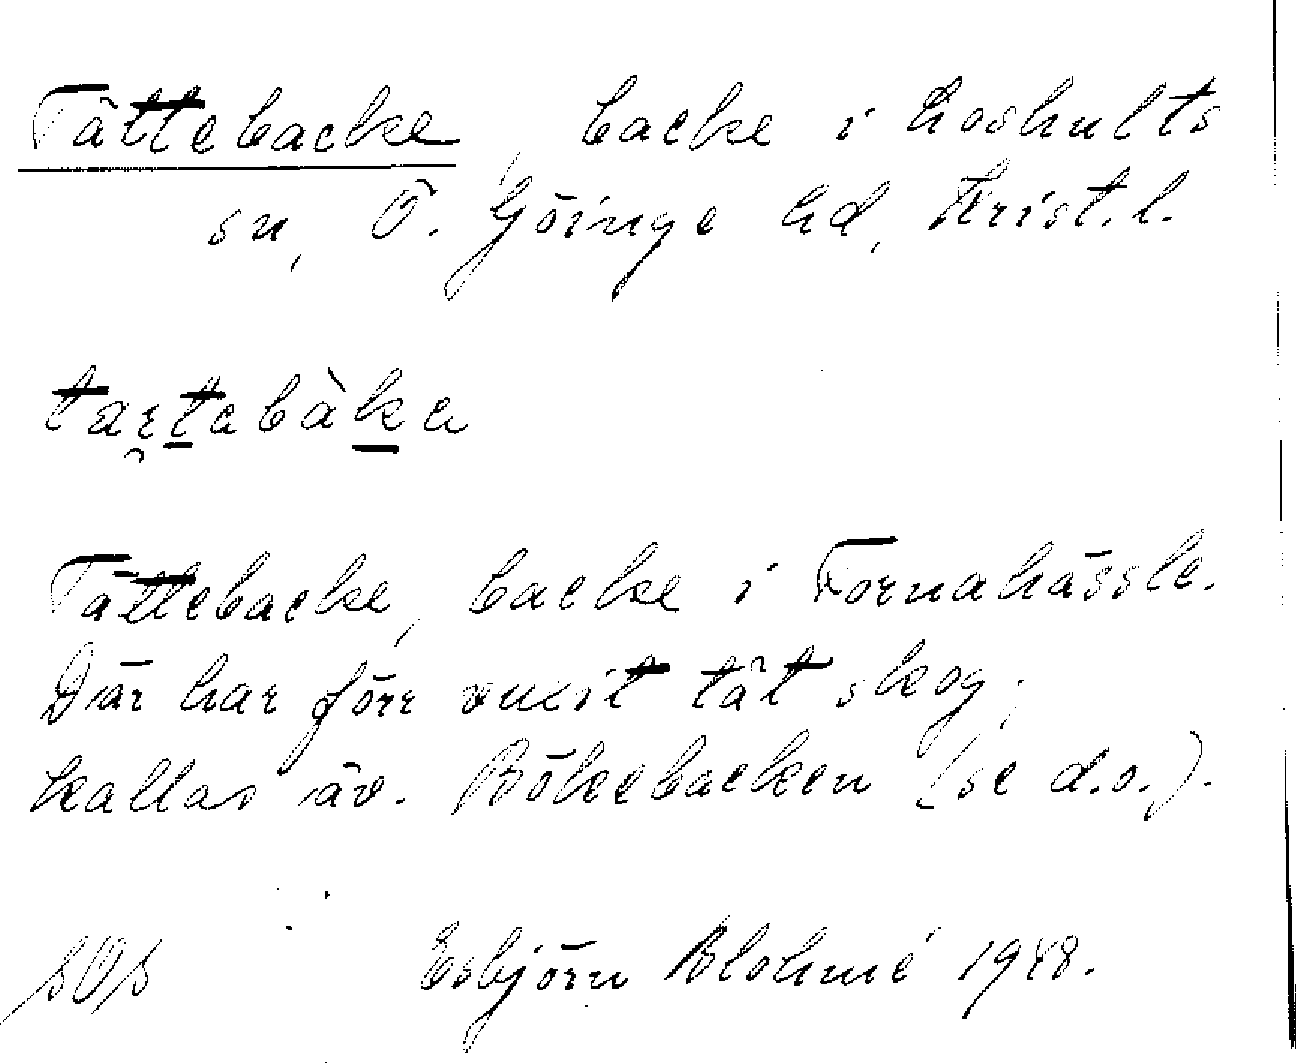 Tättebacke, backe i Loshults
sn, Ö. Göinge hd, Krist.l.
Tättebacke, backe i Tornahässle.
Där har förr vuxit tät skog;
kallas äv. Bökebacken (se d.o.).
Esbjörn Blohmé 1948.